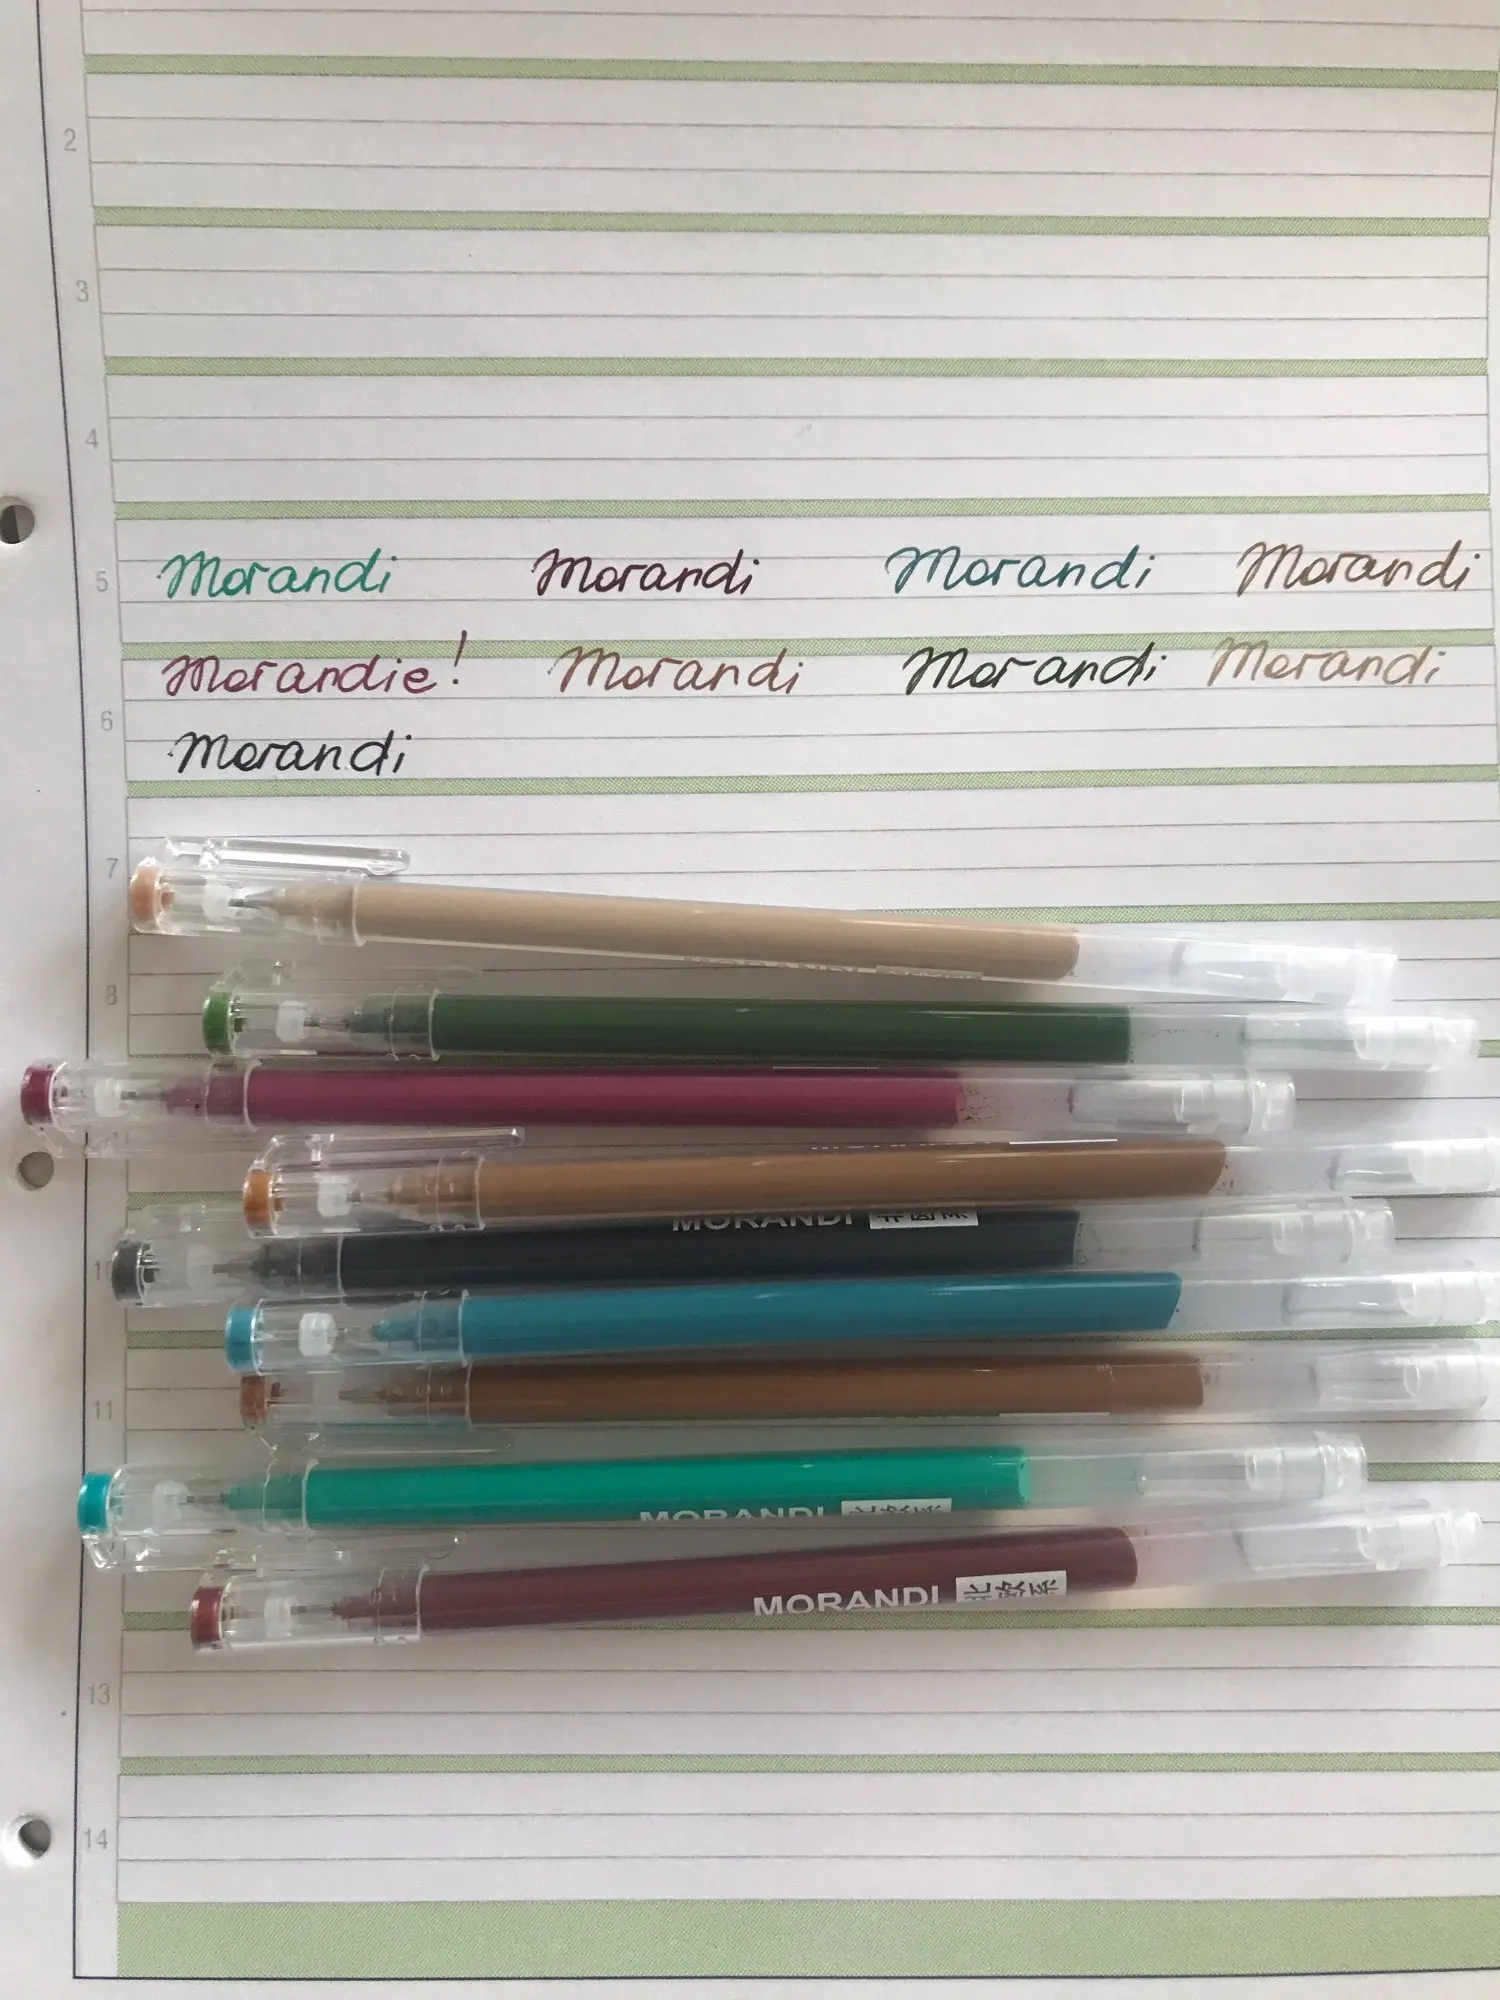 2
3
4
5 Morandi Morandi Morandi Morandi
Morandie! Morandi Morandi Morandi
6
Morandi
7
MORANDI
8
MORANDI
10
11
MORANDI 北欧系
MORANDI 北欧系
13
14